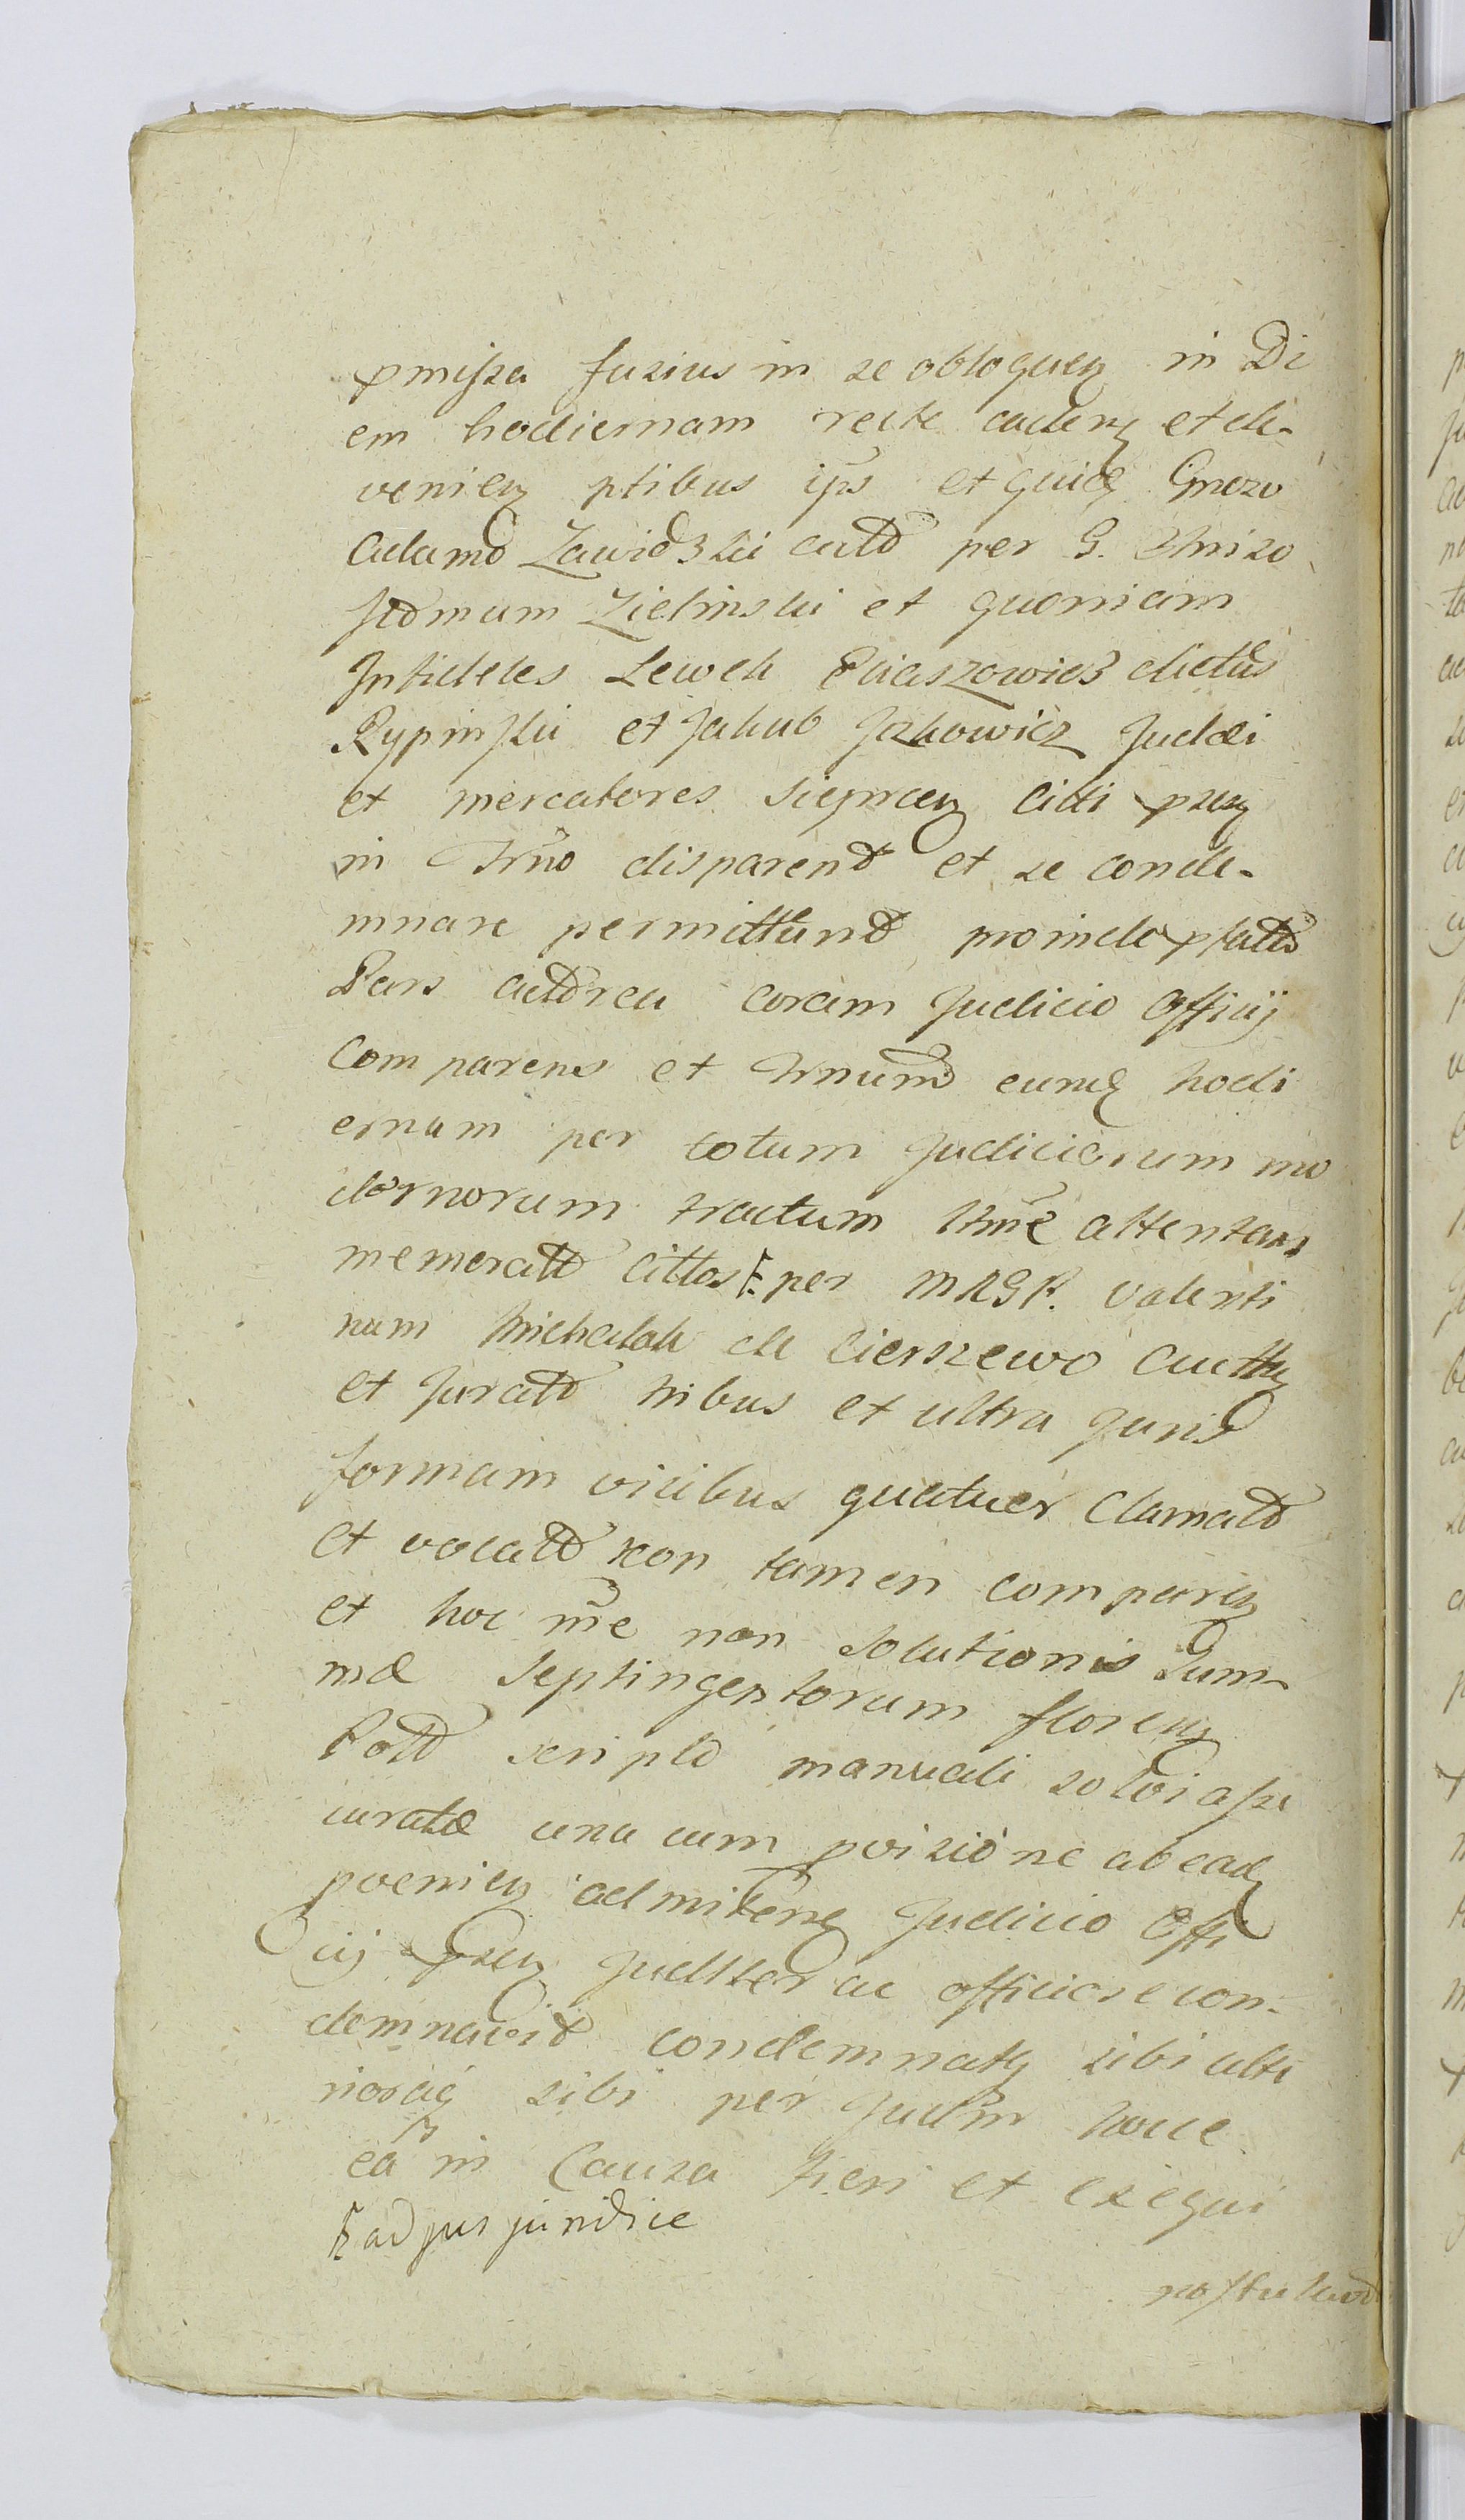 pmissa fusius in se obloquen in Di
em hodiernam recte caden et de-
venien ptibus ips et quid Gneroso
Adamo Zawidzki actō per G. Chriso
stomum Zielinski et quoniam
Infideles Lewek Eliaszowicz dictus
Rypinski et Jakub Jzkowicz Judæi
et mercatores Sieprcen Citti psen
in Trno disparend et se conde-
mnare permittund proinde pfatta
Pars actorea coram Judicio Officij
Comparens et Trnum eund hodi
ernum per totum Judiciorum mo
dernorum tractum ltme attentans
memoratt Cittos per MRGR. Valenti
num Michalak de Cierszewo Autten
et Juratt tribus et ultra Juris
formam vicibus quatuor Clamatt
et vocatt non tamen comparen
et hoc rne non solutionis Sum-
mæ Septingentorum floren
Poll scripto manuali solvi asse
curatæ una cum pvisione ab ead
pvenien admitten Judicio Offi
cij psen Judlter ac officiose con-
demnavit condemnatq sibi ulte
nosq sibi per Judm hocce
eâ in Causa fieri et exequi
ad jus juridice
postuland